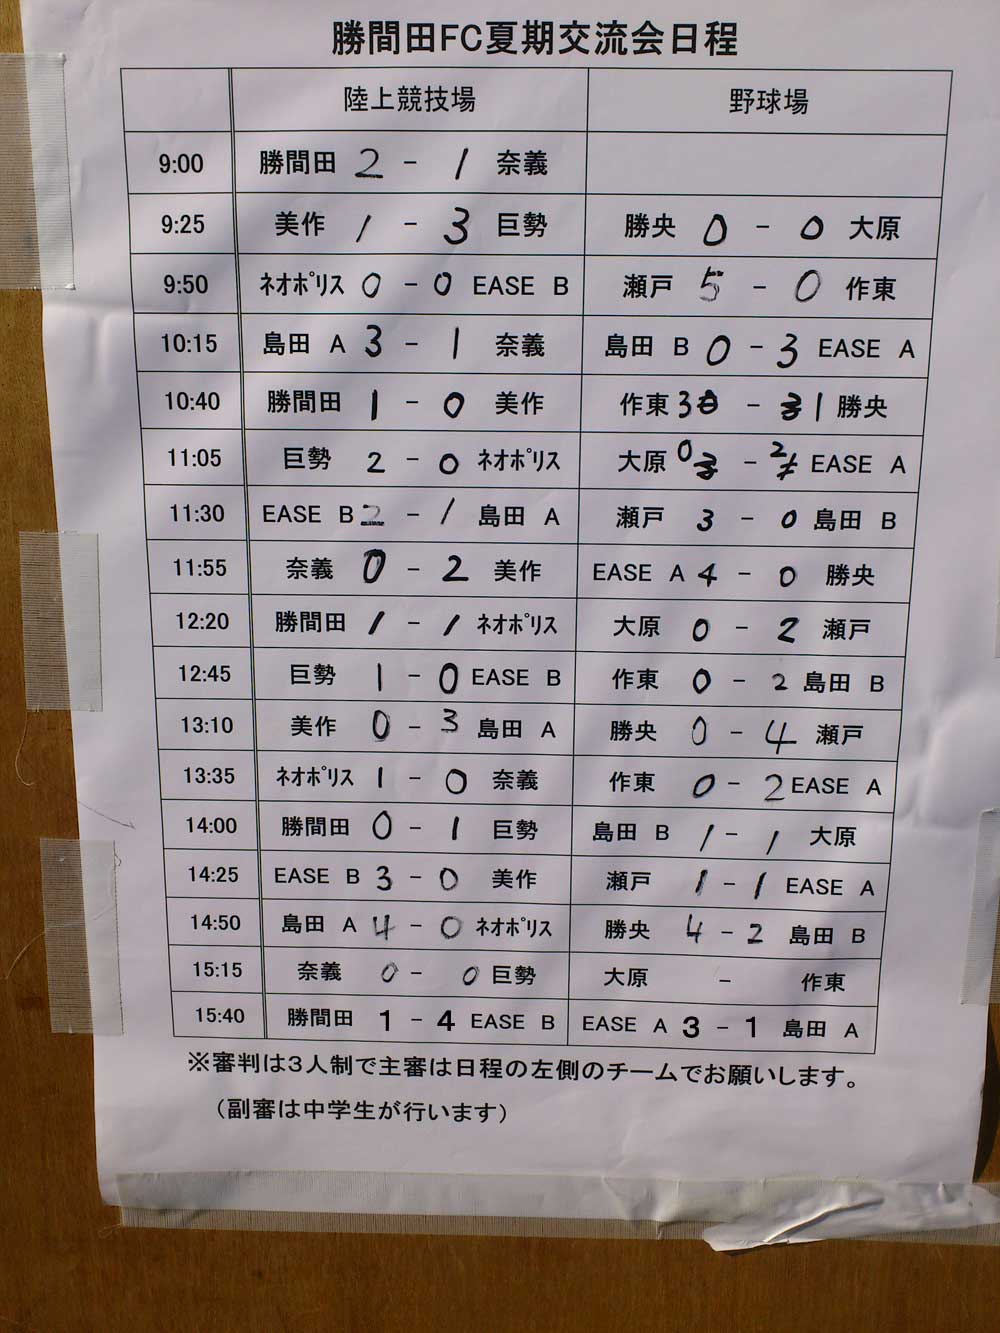 勝間田FC夏期交流会日程
陸上競技場 野球場
9:00 勝間田 2 - 1 奈義
9:25 美作 1 - 3 巨勢 勝央 0 - 0 大原
9:50 ネオポリス 0 - 0 EASE B 瀬戸 5 - 0 作東
10:15 島田 A 3 - 1 奈義 島田 B 0 - 3 EASE A
10:40 勝間田 1 - 0 美作 作東 3 - 1 勝央
11:05 巨勢 2 - 0 ネオポリス 大原 0 - 2 EASE A
11:30 EASE B 2 - 1 島田 A 瀬戸 3 - 0 島田 B
11:55 奈義 0 - 2 美作 EASE A 4 - 0 勝央
12:20 勝間田 1 - 1 ネオポリス 大原 0 - 2 瀬戸
12:45 巨勢 1 - 0 EASE B 作東 0 - 2 島田 B
13:10 美作 0 - 3 島田 A 勝央 0 - 4 瀬戸
13:35 ネオポリス 1 - 0 奈義 作東 0 - 2 EASE A
14:00 勝間田 0 - 1 巨勢 島田 B 1 - 1 大原
14:25 EASE B 3 - 0 美作 瀬戸 1 - 1 EASE A
14:50 島田 A 4 - 0 ネオポリス 勝央 4 - 2 島田 B
15:15 奈義 0 - 0 巨勢 大原 - 作東
15:40 勝間田 1 - 4 EASE B EASE A 3 - 1 島田 A
※審判は3人制で主審は日程の左側のチームでお願いします。
（副審は中学生が行います）